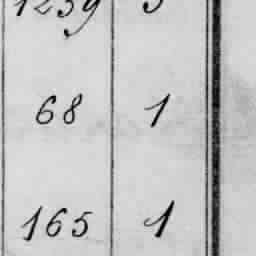 1239
68 1
165 1